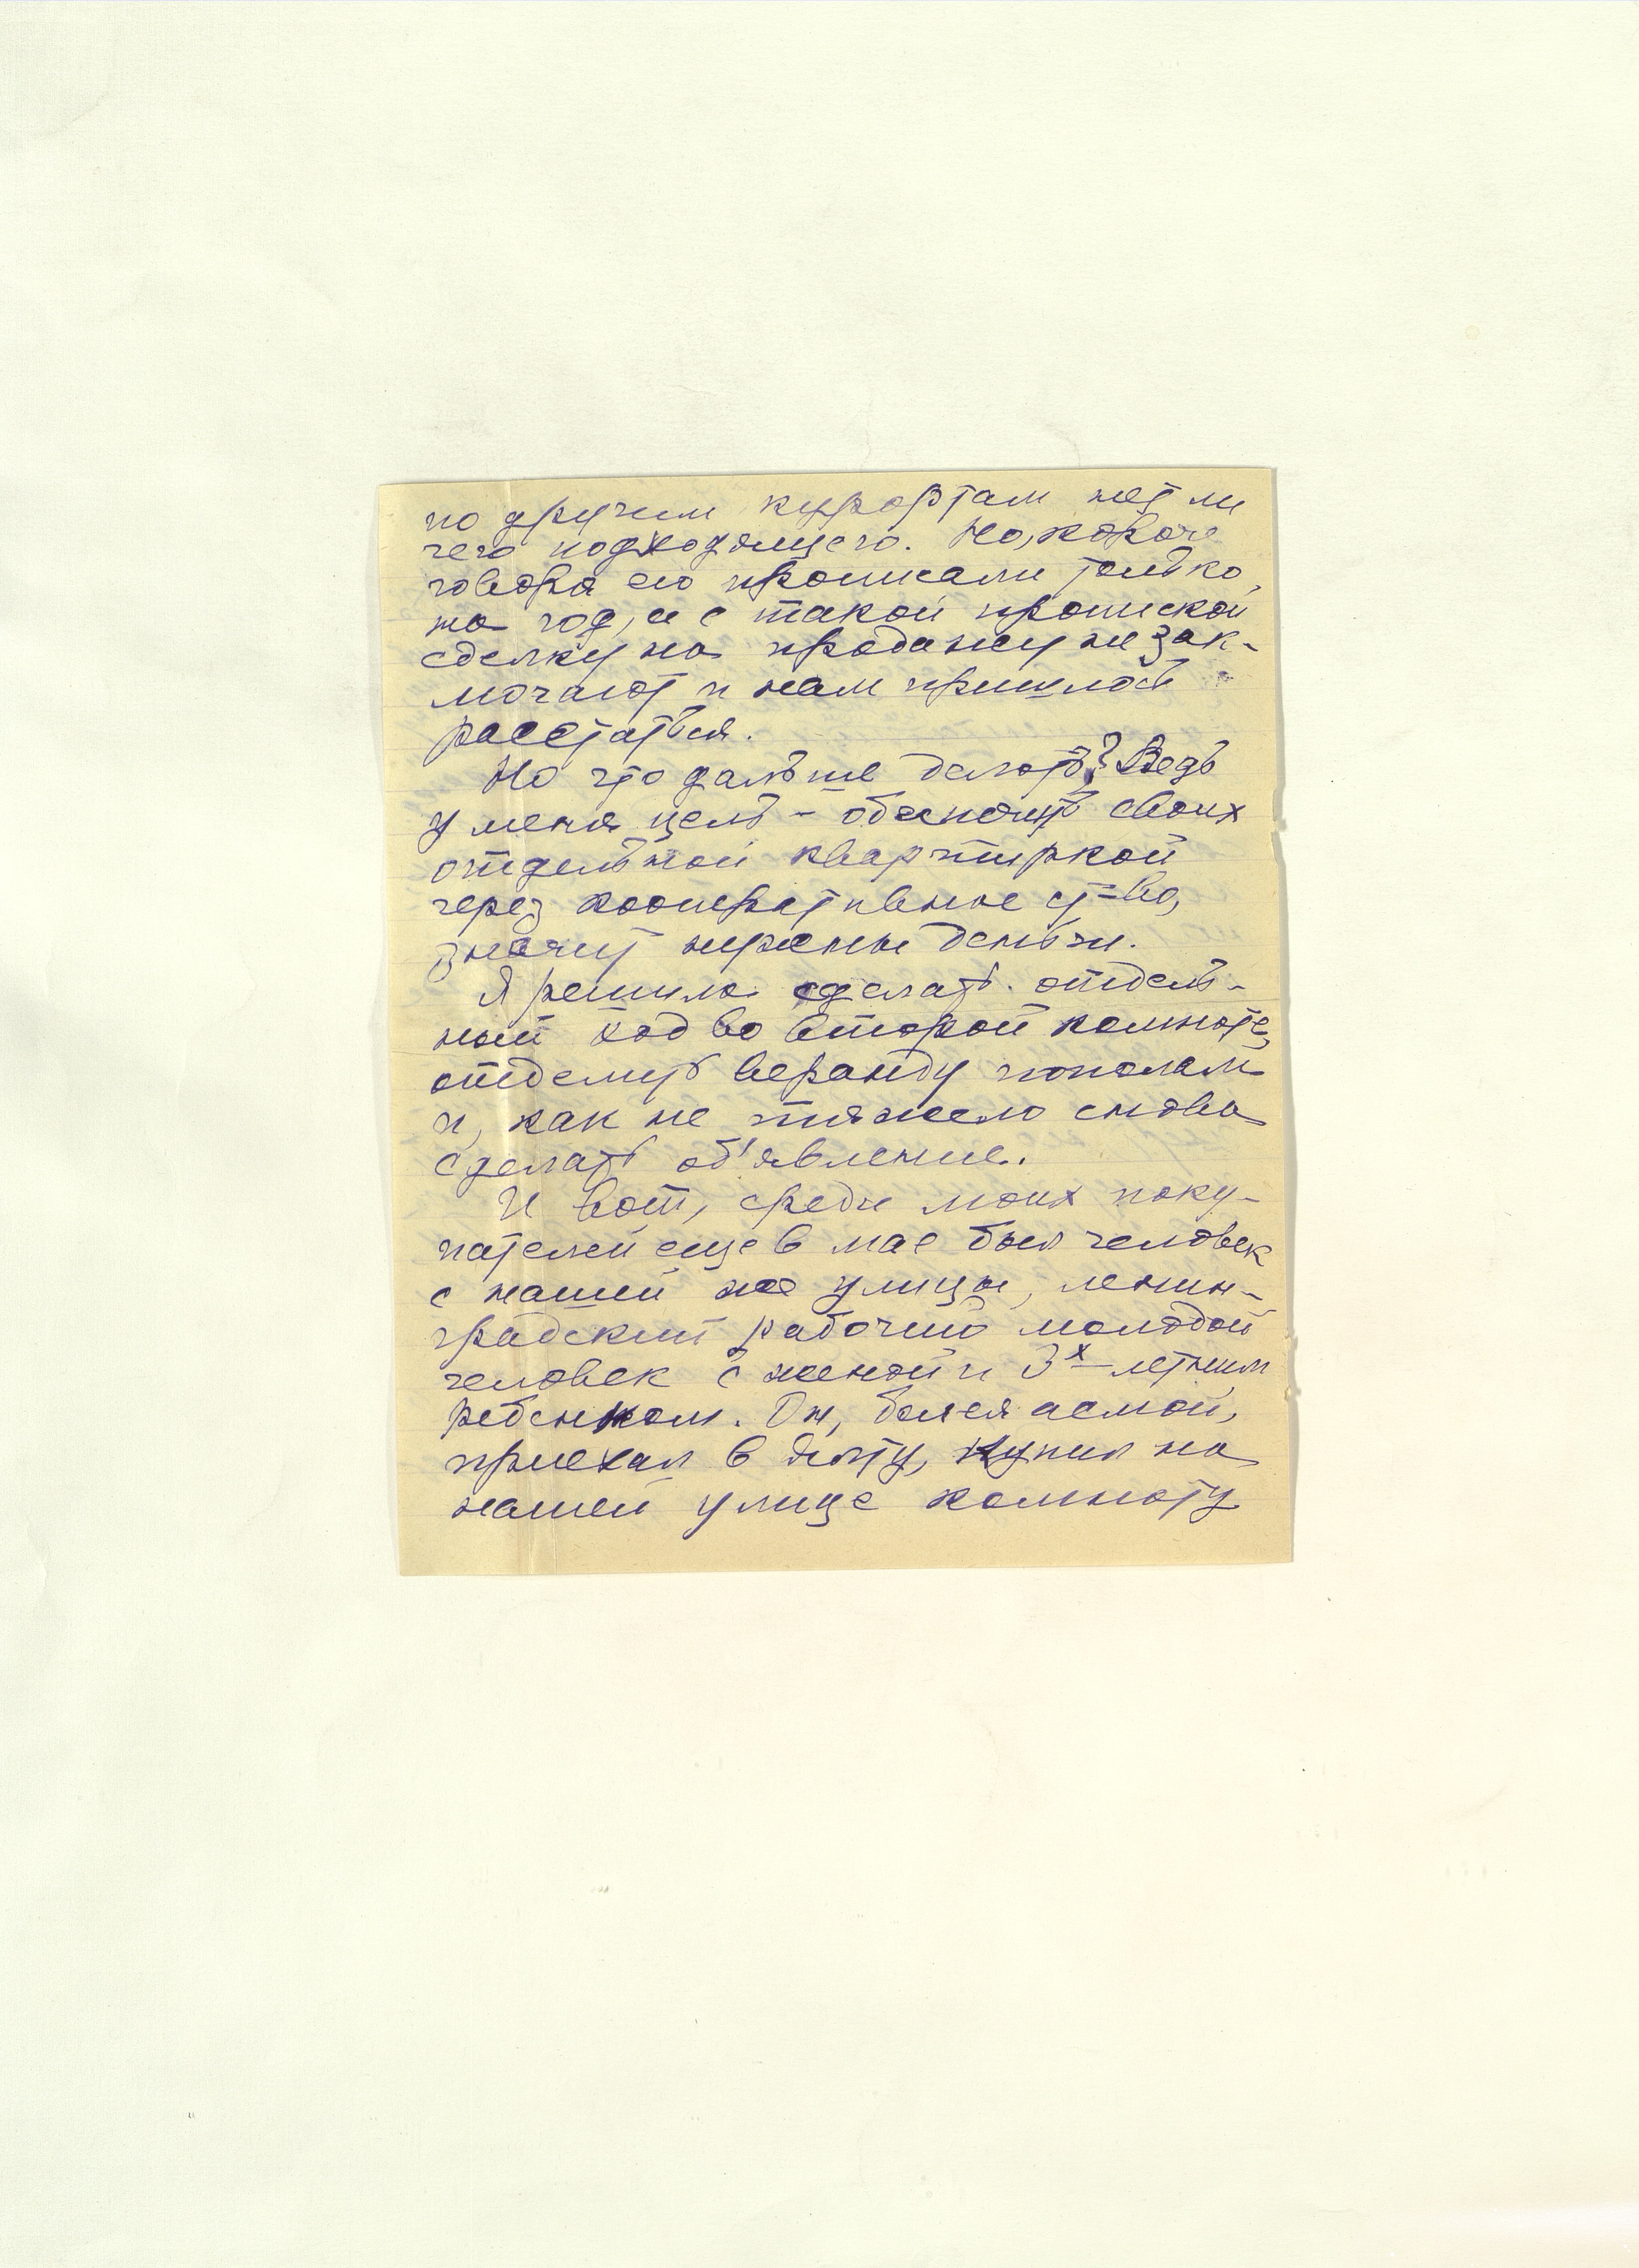 по другим курортам нет ли
чего подходящего. Но, короче
говоря его прописали только
на год, а с такой пропиской
сделку на продажу не зак-
лючают и нам пришлось
расстаться.
Но что дальше делать? Ведь
у меня цель - обеспечить своих
отдельной квартиркой
через кооперативное ст=во,
значит нужны деньги.
Я решила сделать отдель-
ный ход во второй комнате,
отделить веранду пополам
и, как не тяжело снова
сделать об'явление.
И вот, среди моих поку-
пателей еще в мае был человек
с нашей же улицы, ленин-
градский рабочий молодой
человек с женой и 3х-летним
ребенком. Он, болея астмой,
приехал в Ялту, купил на
нашей улице комнату